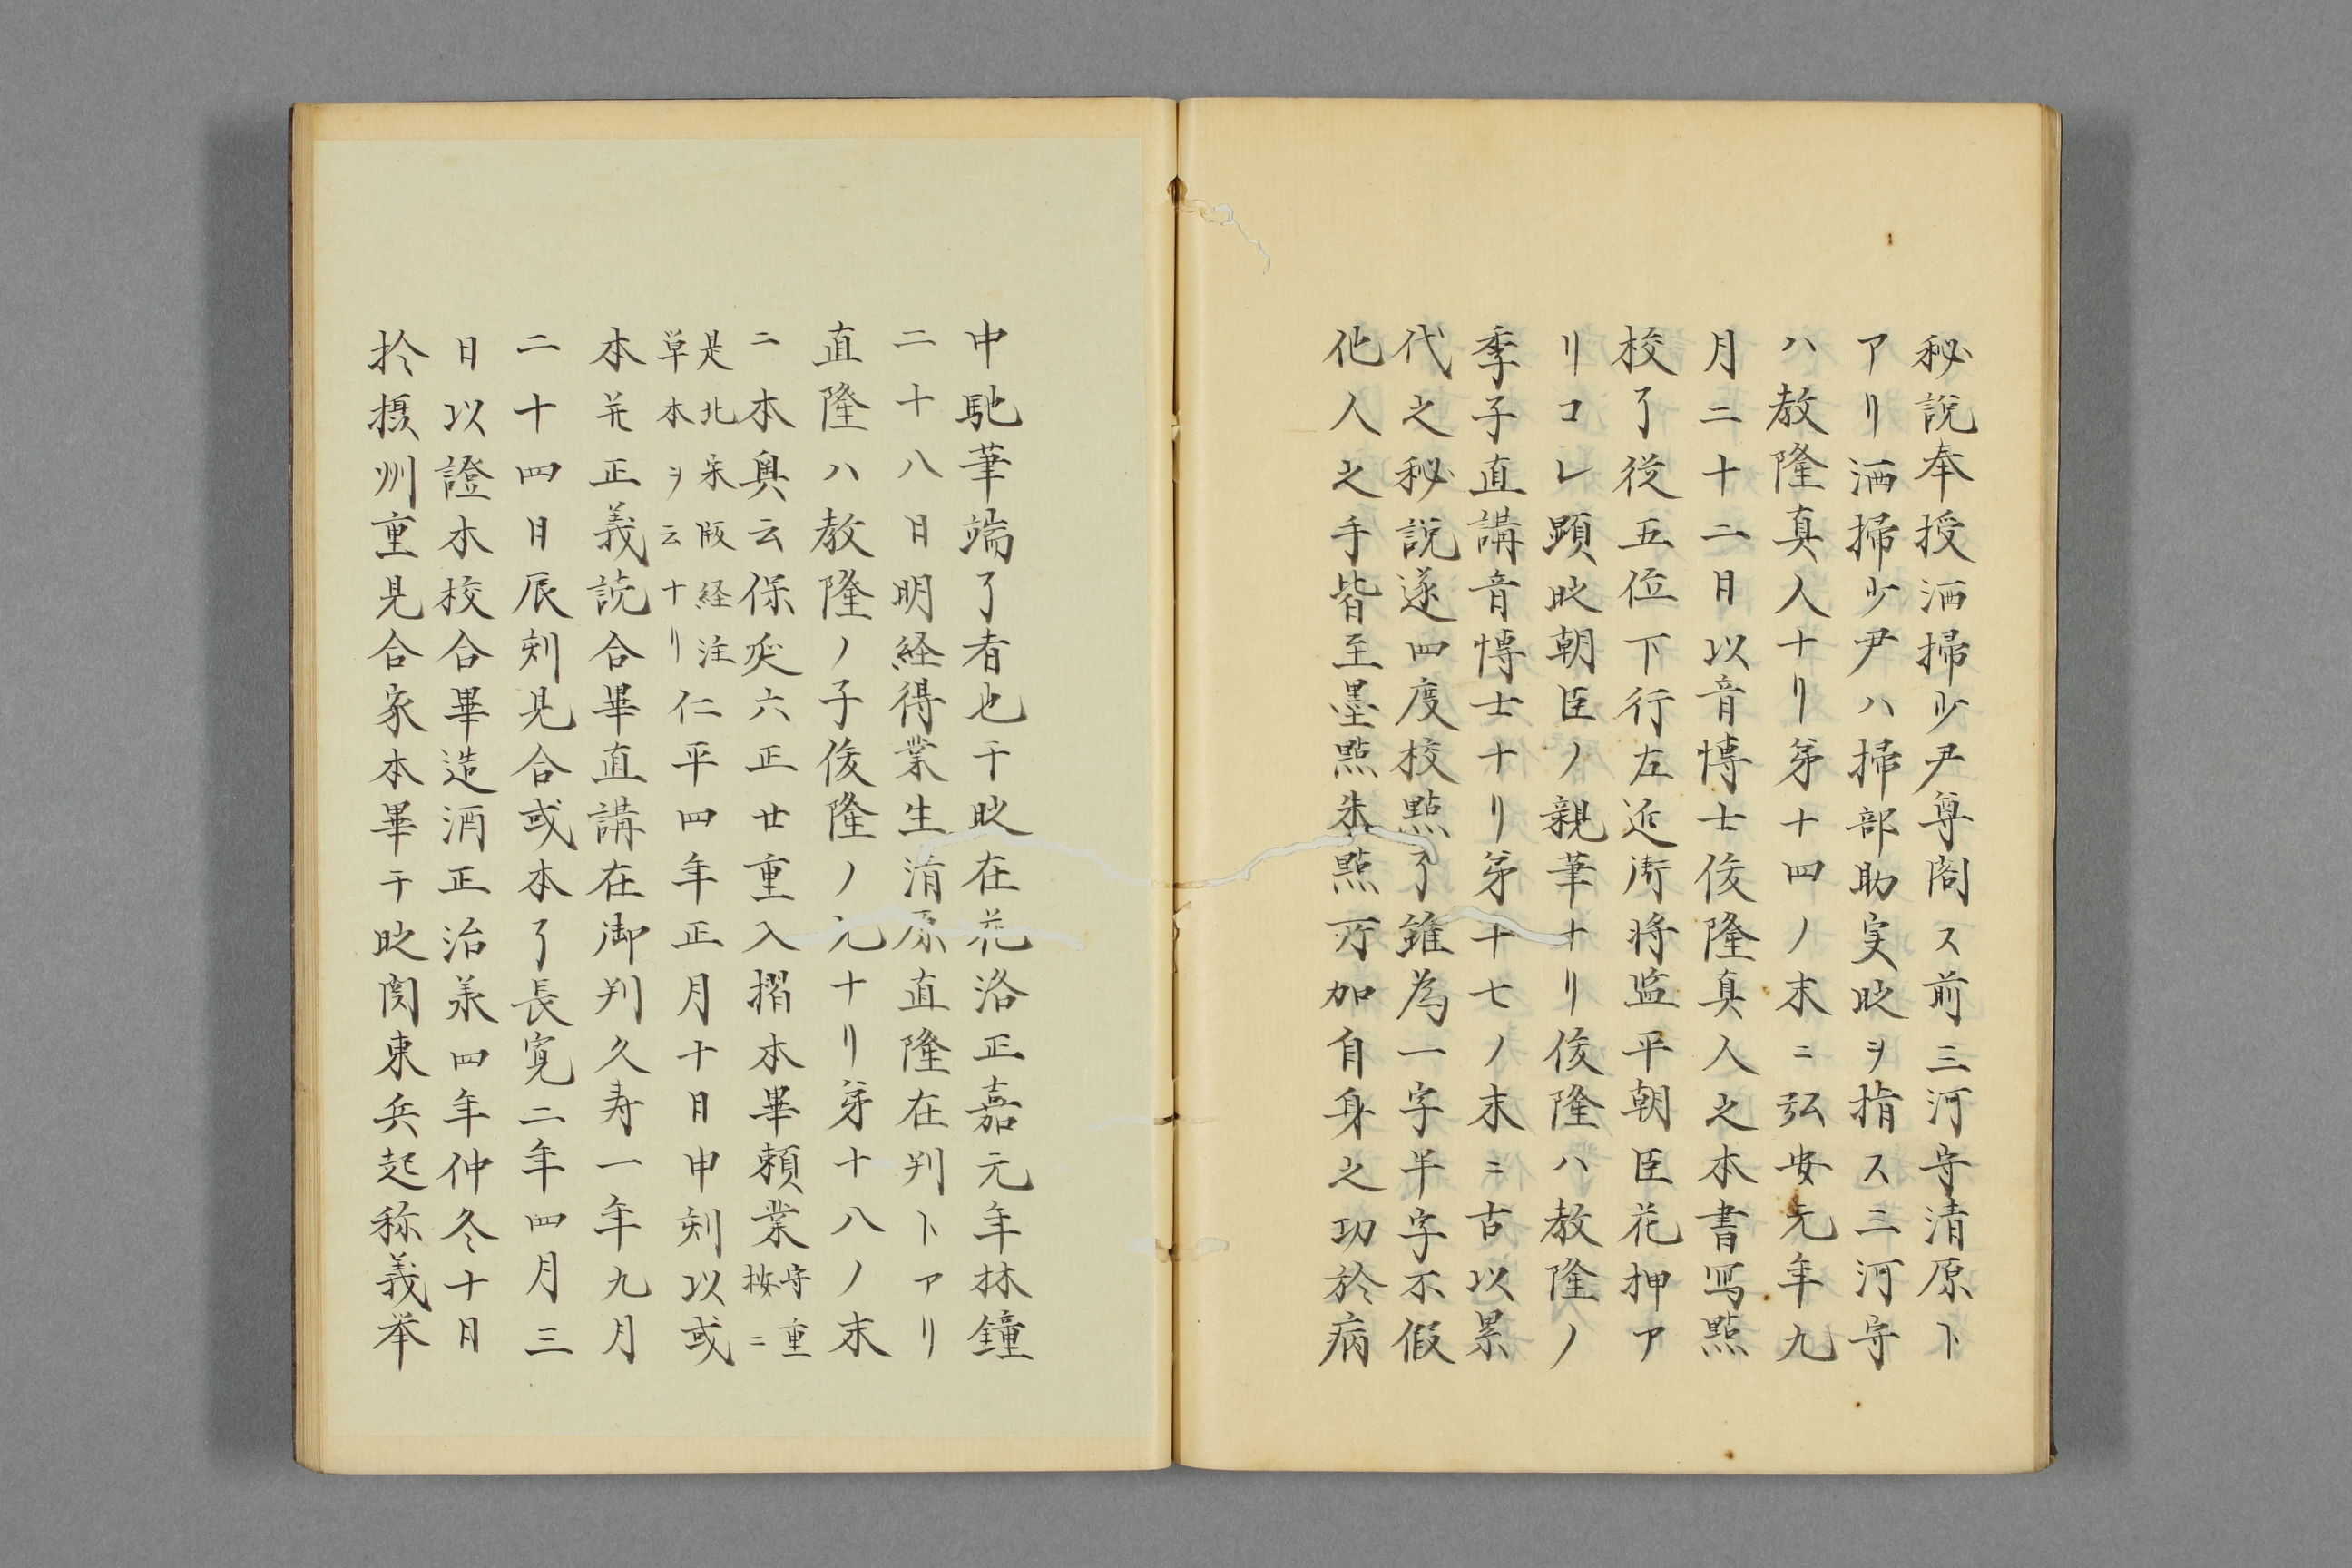 秘說奉授洒掃少尹尊閤ス前三河守清原ト
アリ洒掃少尹ハ掃部助実时ヲ指ス三河守
ハ教隆真人ナリ第十四ノ末ニ弘安元年九
月二十二日以音博士俊隆真人之本書写點
校了従五位下行左近衛将監平朝臣花押ア
リコレ顕时朝臣ノ親筆ナリ俊隆ハ教隆ノ
季子直講音博士ナリ第十七ノ末ニ古以累
代之秘說遂四度校點了雖為一字半字不假
他人之手皆至墨點朱點所加自身之功於病
中馳筆端了者也于时在花洛正嘉元年林鐘
二十八日明経得業生清原直隆在判トアリ
直隆ハ教隆ノ子俊隆ノ兄ナリ第十八ノ末
ニ本奥云保延六正廿重入摺本畢頼業守重按ニ
是北宋版経注草本ヲ云ナリ仁平四年正月十日申刻以或
本并正義読合畢直講在御判久寿一年九月
二十四日辰刻見合或本了長寛二年四月三
日以證本校合畢造酒正治承四年仲冬十日
於摂州重見合家本畢于时関東兵起称義挙